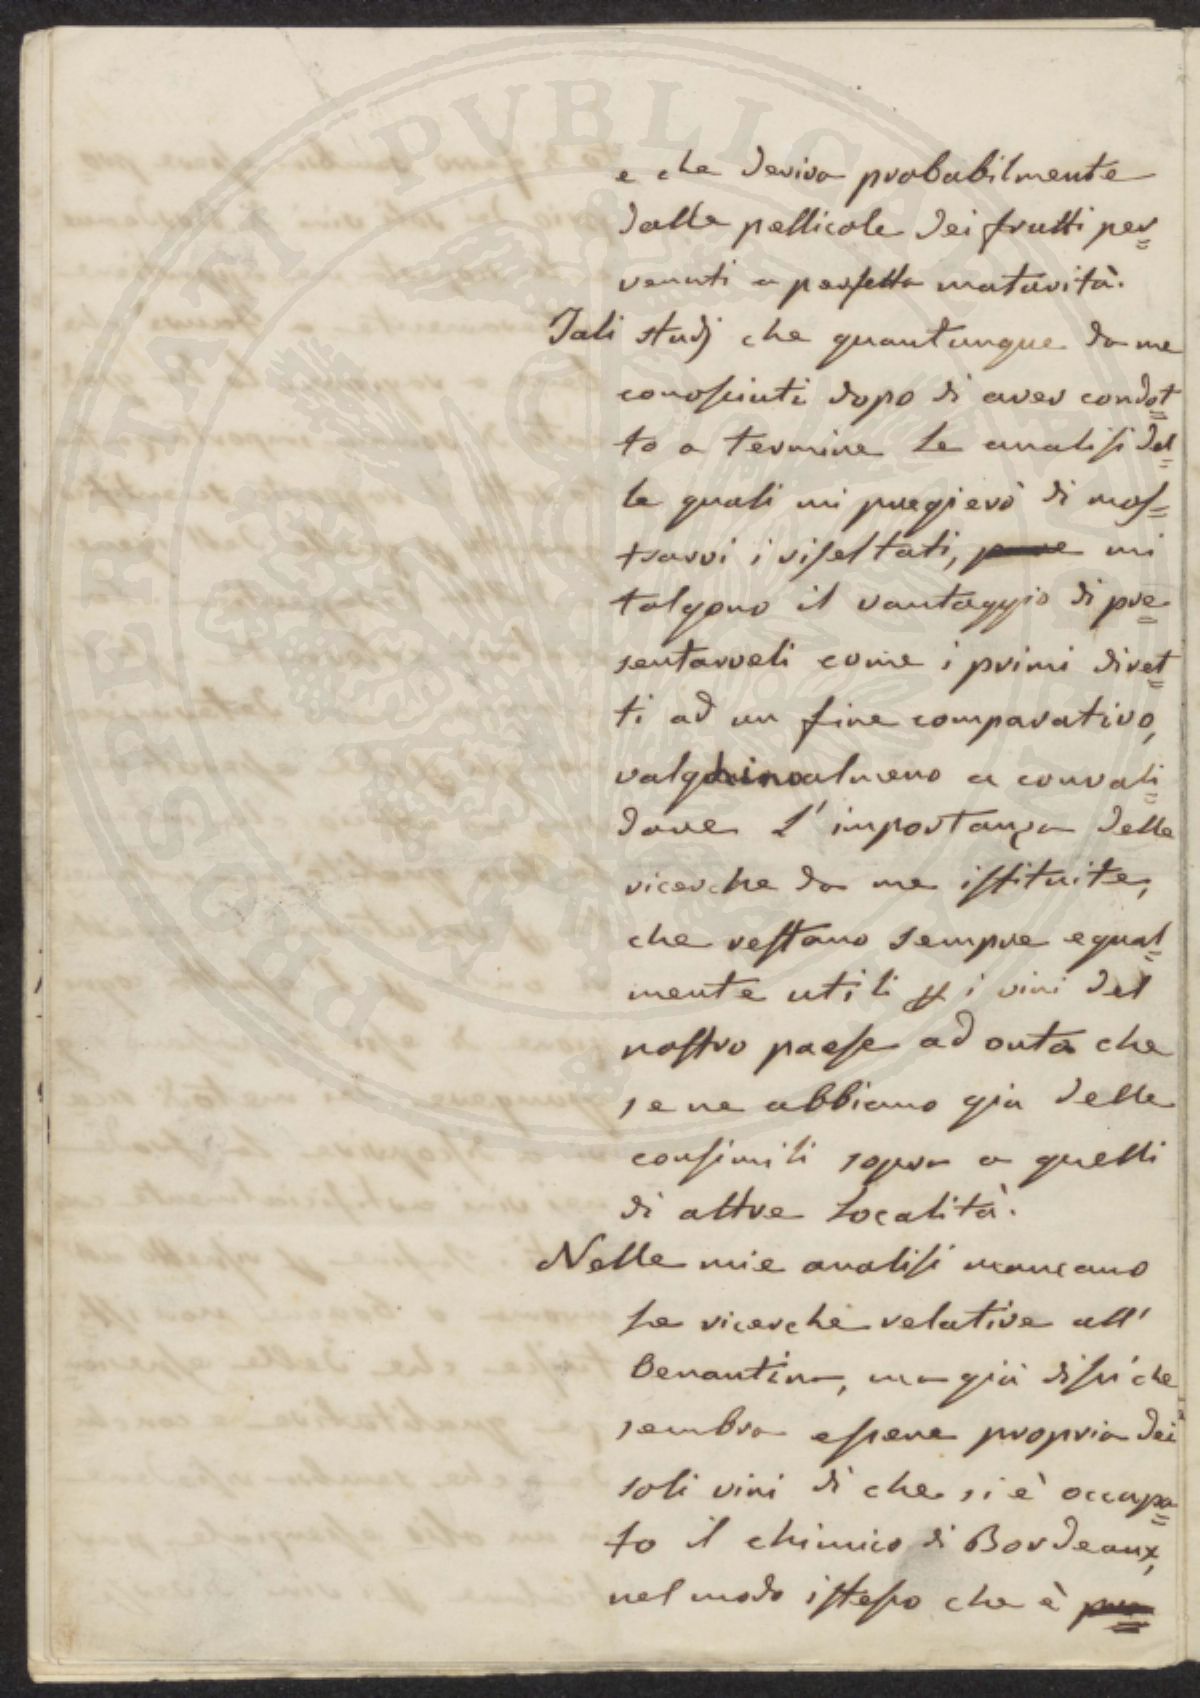 e che deriva probabilmente
dalle pellicole dei frutti per=
venuti a perfetta maturità.
Tali studj che quantunque da me
conosciuti dopo di aver condot=
to a termine le analisi del=
le quali mi pregierò di mos=
trarvi i risultati, pure mi
tolgono il vantaggio di pre=
sentarveli come i primi diret=
ti ad un fine comparativo,
valghino almeno a convali=
dare l'importanza delle
ricerche da me istituite,
che restano sempre egual=
mente utili p i vini del
nostro paese ad onta che
se ne abbiano già delle
consimili sopra a quelli
di altre località.
Nelle mie analisi mancano
le ricerche relative all'
Oenantina, ma già dissi che
sembra essere propria dei
soli vini di che si è occupa=
to il chimico di Bordeaux,
nel modo istesso che è